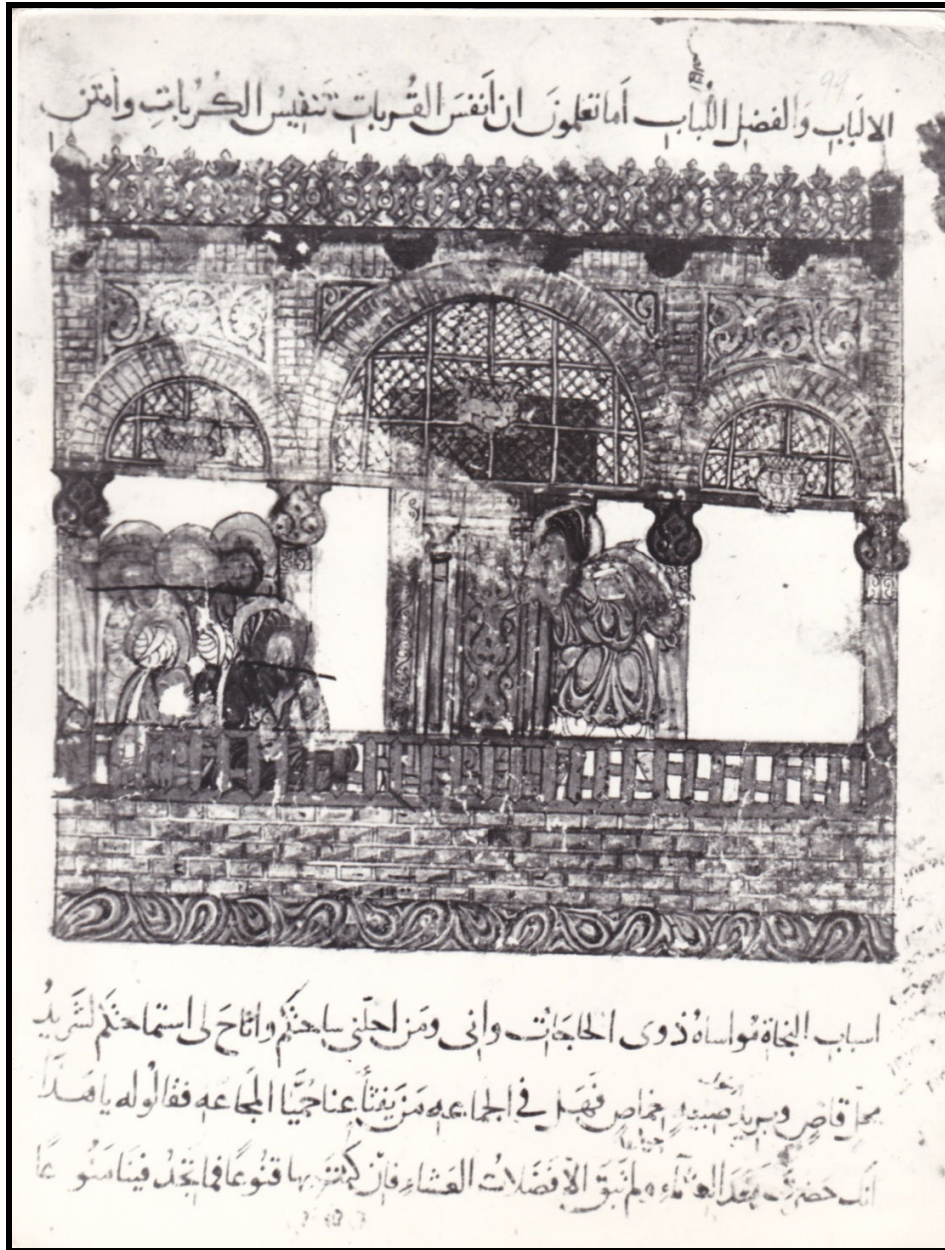 الالباب والفضل اللُّباب أما تعلمونَ ان أنفسَ القُربات تنفيسُ الكُرُباتِ وامتن
اسباب النجاة مُواساةُ ذوى الحاجات وانى ومَن احلّنى ساحتكم واتاحَ لى استماحتكم لشَريدُ
محلّ قاصٍ وبريد صبيةٍ خماصٍ فهَل فى الجماعه مَن يفثأ عنا حُميَّا المَجاعه فقالوا له يا هذا
انك حضرت بعدَ العشاء ولم تبق الا فضَلاتُ العَشاءِ فان كنتَ بها قنُوعًا فما تجدُ فينا منُوعًا